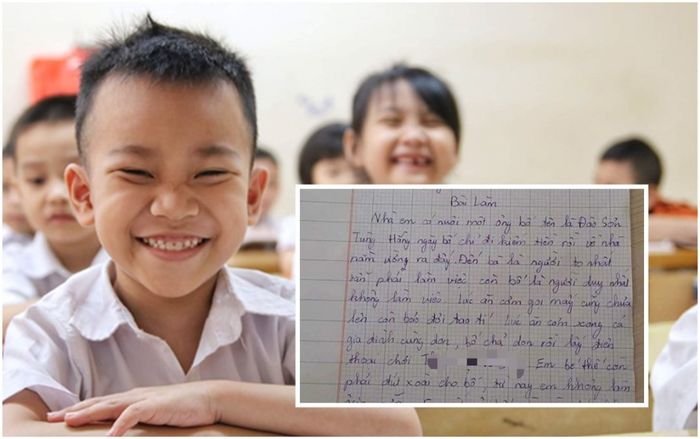 Bài Làm
Nhà em có nuôi một ông bố tên là Đào Sơn
Tùng Hằng ngày bố chỉ đi kiếm tiền rồi về nhà
nằm uống ra đấy. Đến bà là người to nhất
vẫn phải làm việc còn bố là người duy nhất
không làm việc. Lúc ăn cơm gọi mãy cũng chưa
lên còn bảo đợi tao tí. Lúc ăn cơm xong cả
gia đình cùng dọn, bố chả dọn rồi lấy điện
thoại chơi Em bé thế còn
phải đút xoài cho bố, từ nay em không làm